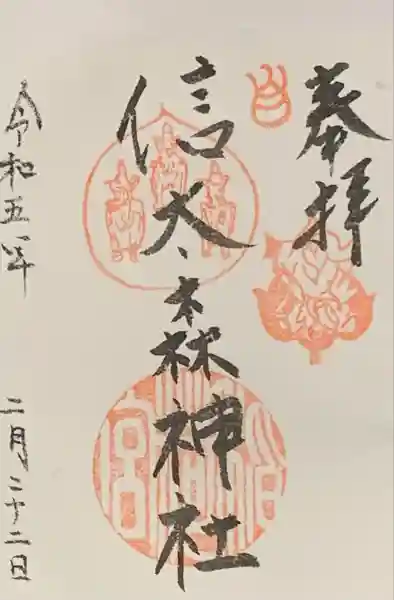 奉拝
信太森神社
令和五年
二月二十二日